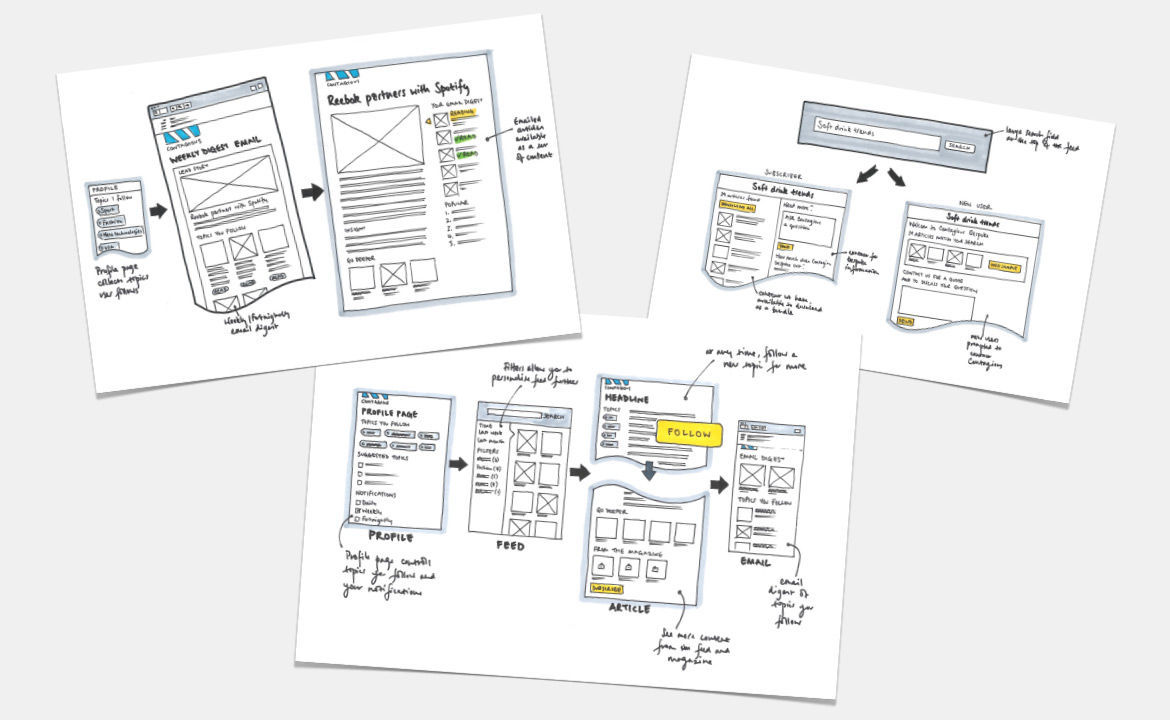 PROFILE
Topics I follow
Sport
Fashion
New technologies
Profile page
collects topics
user follows
CONTAGIOUS
WEEKLY DIGEST EMAIL
LEAD STORY
Reebok partners with Spotify
TOPICS YOU FOLLOW
READ
READ
READ
Weekly/Fortnightly
email digest
CONTAGIOUS
Reebok partners with Spotify
YOUR EMAIL DIGEST
READING
INSIGHT
GO DEEPER
POPULAR
1.
2.
3.
4.
5.
Emailed
articles
available
as a set
of content
Soft drink trends
SEARCH
large search field
at the top of the feed
SUBSCRIBER
Soft drink trends
articles found
DOWNLOAD ALL
Need more?
Ask Contagious
a question
SEND
contact for
bespoke
information
content we have,
available to download
as a bundle
NEW USER
Soft drink trends
Welcome to Contagious Bespoke
ARTICLES MATCH YOUR SEARCH
CONTACT US FOR A QUOTE
AND TO DISCUSS YOUR QUESTION
SEND
new users
prompted to
contact
Contagious
CONTAGIOUS
PROFILE PAGE
TOPICS YOU FOLLOW
SUGGESTED TOPICS
NOTIFICATIONS
Daily
Weekly
Fortnightly
PROFILE
Profile page controls
topics you follow and
your notifications
Filters allow you to
personalise feed further
SEARCH
Last week
Last month
FILTERS
FEED
at any time, follow a
new topic for more
CONTAGIOUS
HEADLINE
TOPICS
FOLLOW
GO DEEPER
FROM THE MAGAZINE
SUBSCRIBE
ARTICLE
See more content
from the feed and
magazine
EMAIL DIGEST
TOPICS YOU FOLLOW
EMAIL
email
digest of
topics you
follow